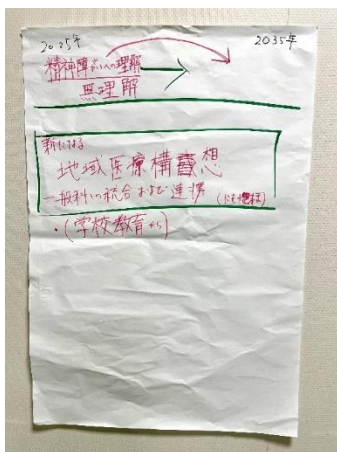 2025年 2035年
精神障がいへの理解
無理解
新たなる
地域医療構想
一般科との統合および連携
・(学校教育から)